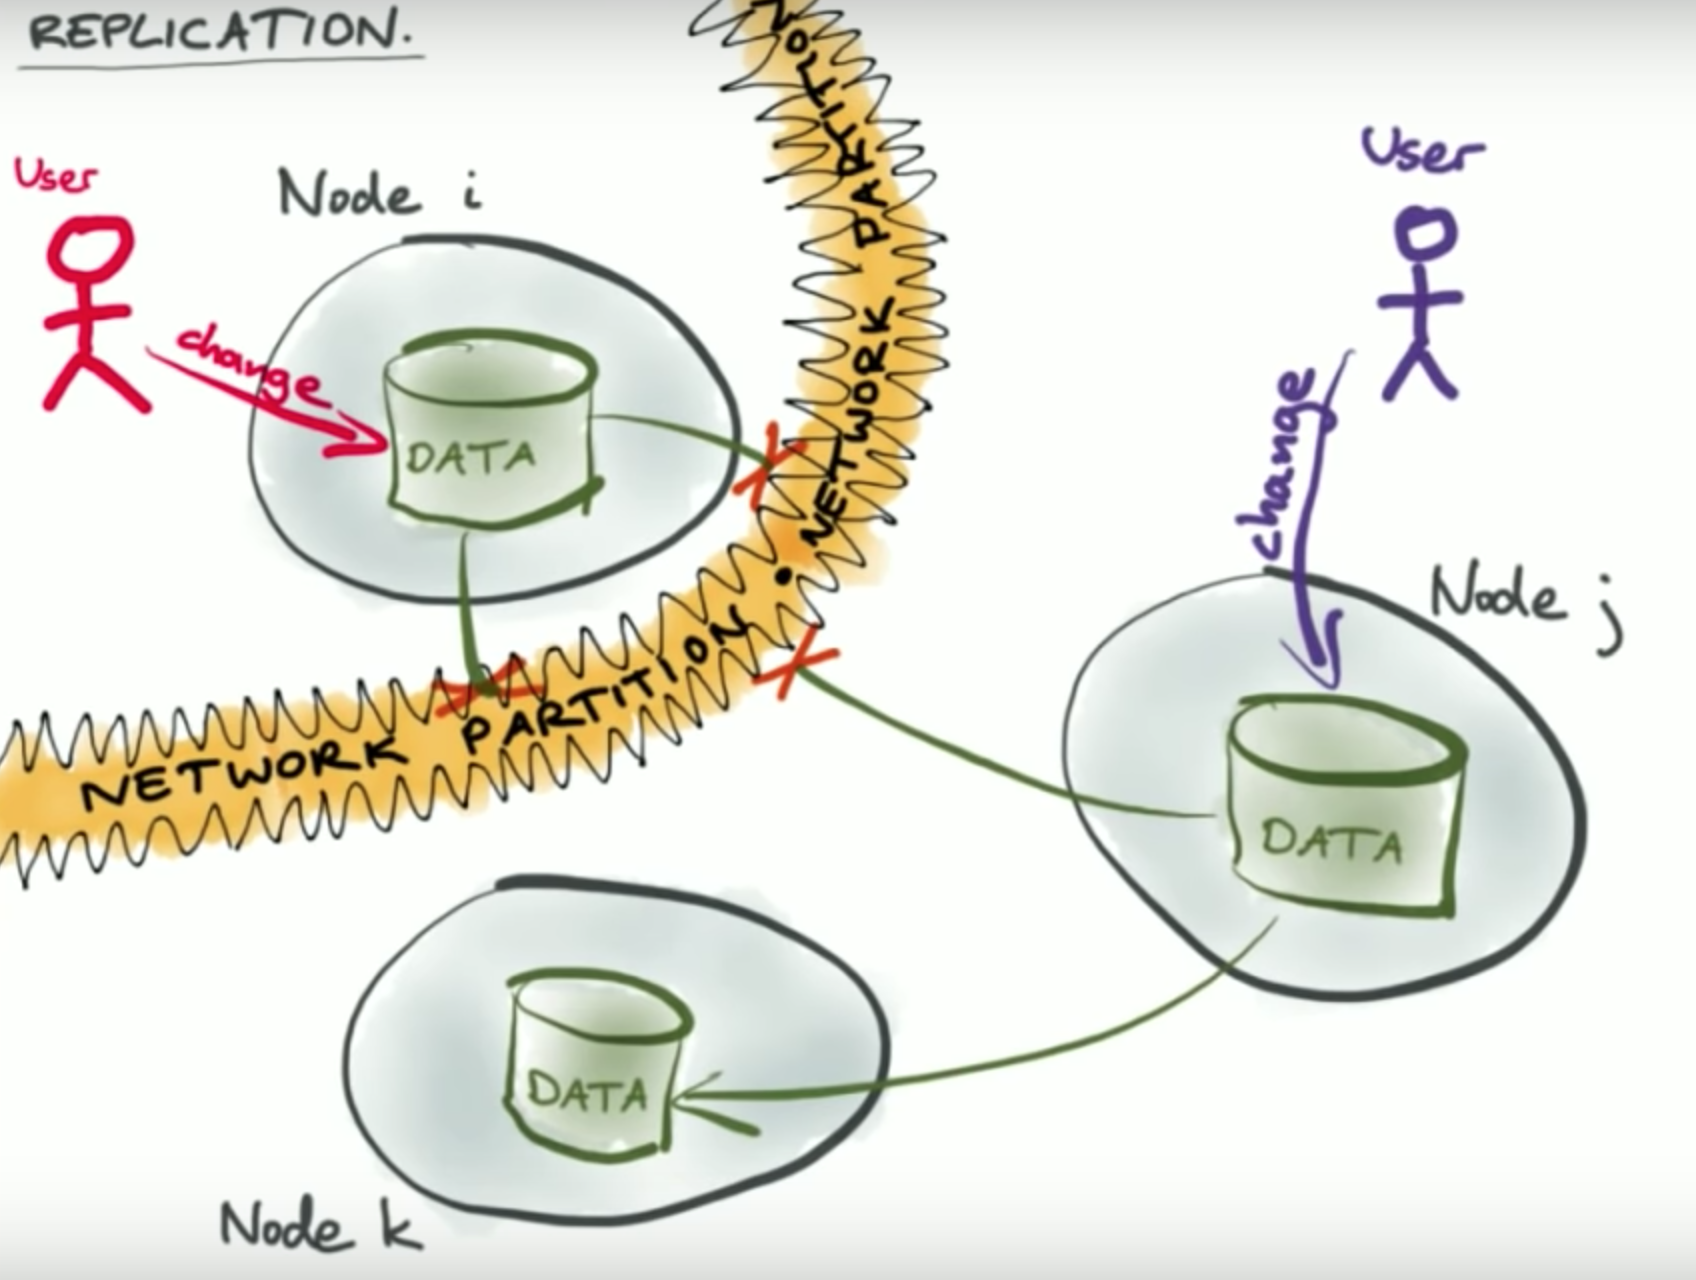 REPLICATION.
User
Node i
change
DATA
NETWORK PARTITION • NETWORK PARTITION
User
change
Node j
DATA
DATA
Node k